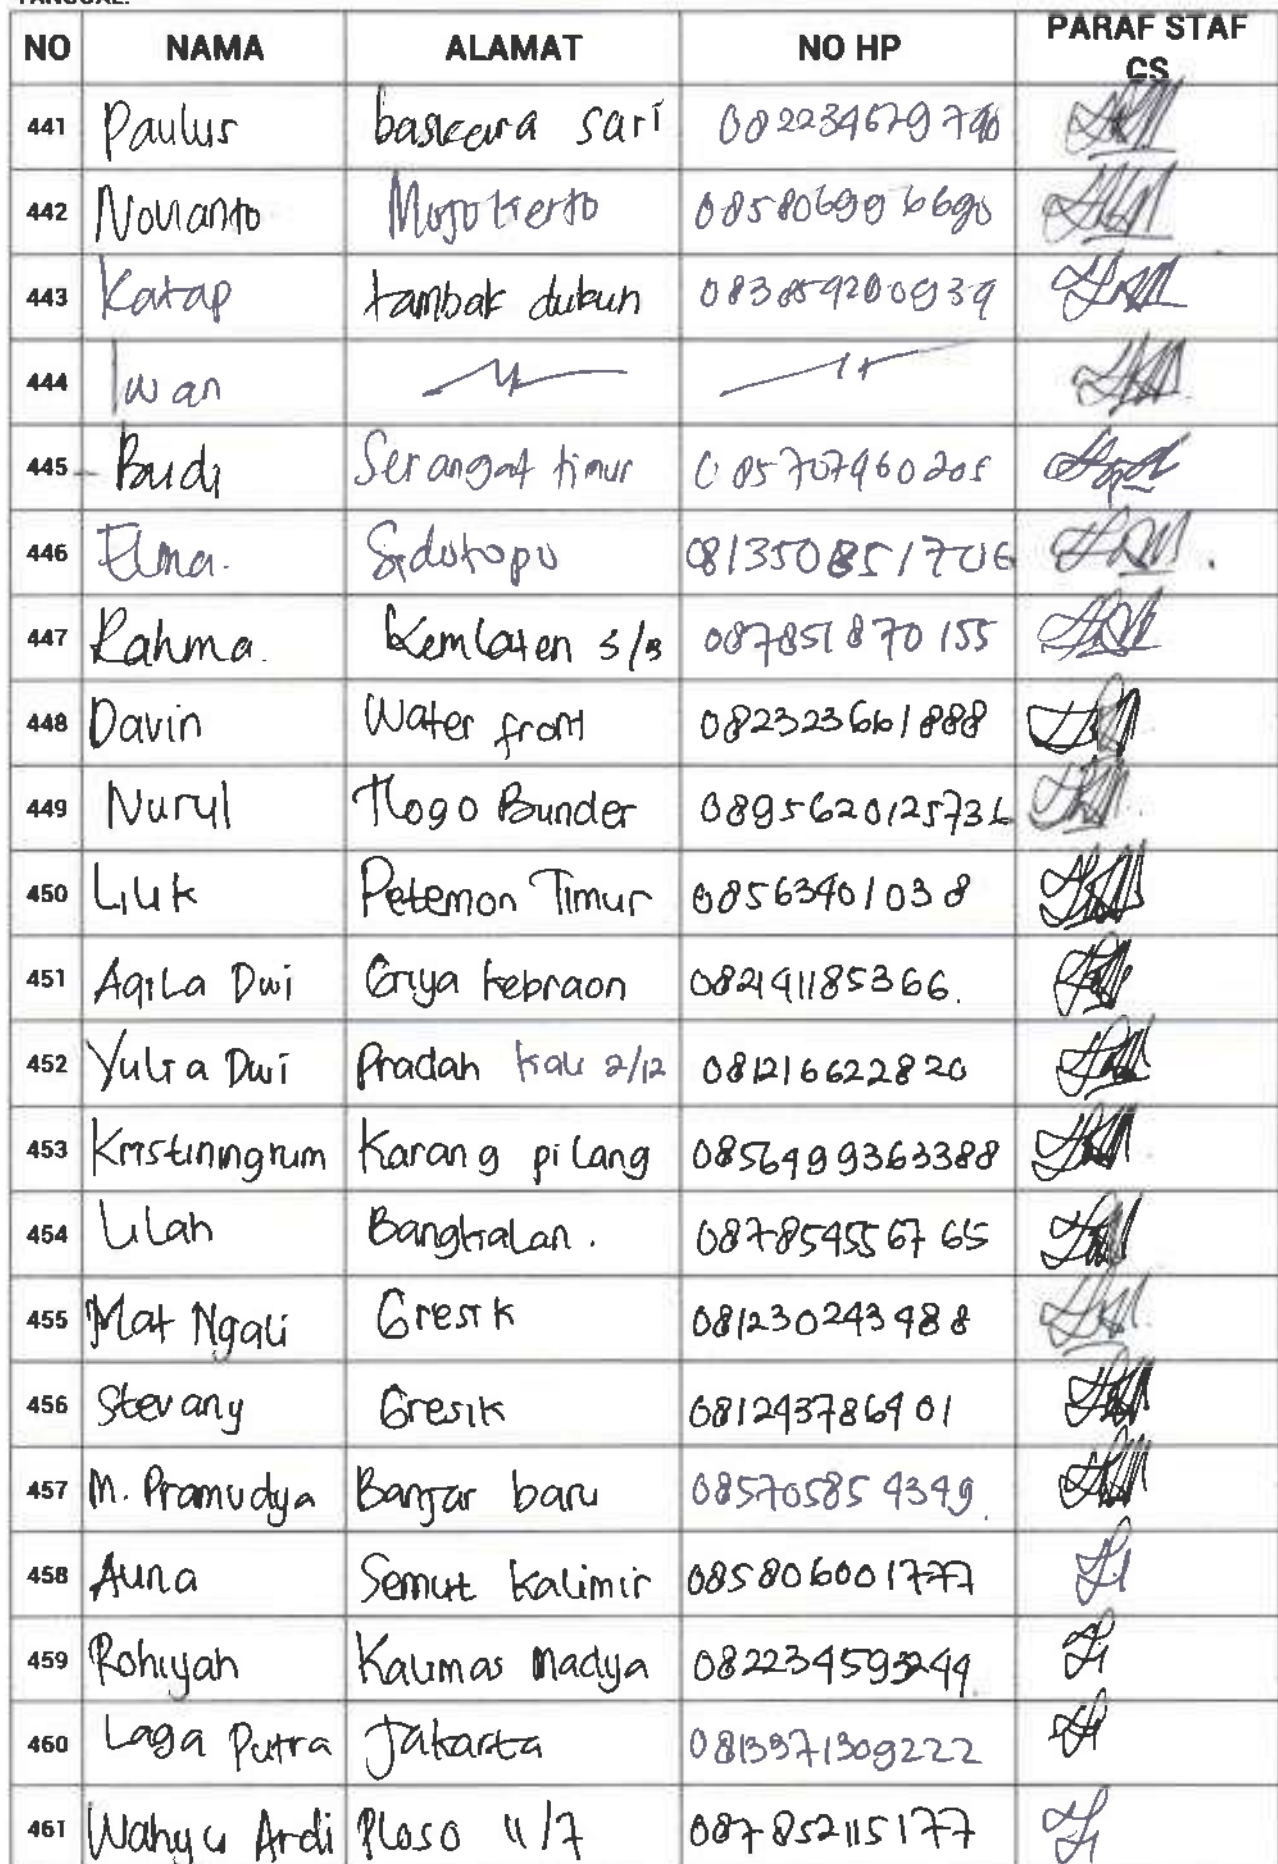 TANGGAL:
NO NAMA ALAMAT NO HP PARAF STAF CS
441 Paulus baskara sari
442 Novianto Mojokerto 085806996690
443 Katap tambak dukun 083859200939
444 Iwan
445 Budi Serangat timur 085707960205
446 Elma. Sidotopo 081350851706
447 Rahma. Kemlaten 3/B 087851870155
448 Davin Water front 082323661888
449 Nurul Tlogo Bunder 0895620125736
450 Liluk Petemon Timur 08563401038
451 Aqila Dwi Griya kebraon 082141185366.
452 Yulia Dwi Pradah kali 2/12 081216622820
453 Kristiningrum Karang pilang 0856499363388
454 Lilah Bangkalan. 0878545567 65
455 Mat Ngali Gresik 081230243488
456 Stevany Gresik 081243786401
457 M. Pramudya Banjar baru 08570585 4349
458 Auna Semut kalimir 085806001777
459 Rohiyah Kalimas Madya 082234593244
460 Laga Putra Jakarta 0813371309222
461 Wahyu Ardi Ploso 11/7 087852115177